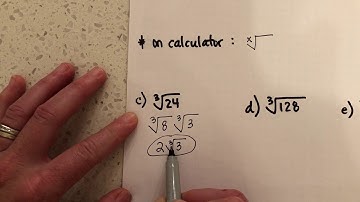 * on calculator : ˣ√
c) ³√24
³√8 ³√3
2 ³√3
d) ³√128
e)